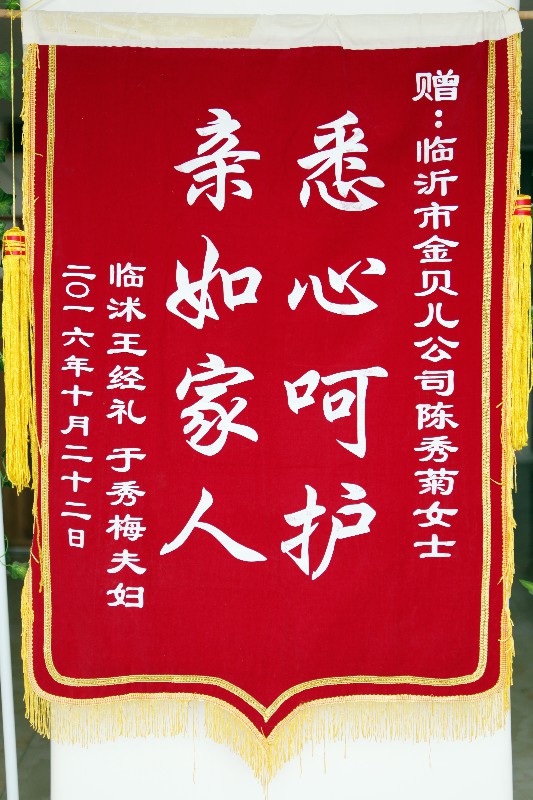 赠：临沂市金贝儿公司陈秀菊女士
悉心呵护
亲如家人
临沭王经礼 于秀梅夫妇
二〇一六年十月二十二日